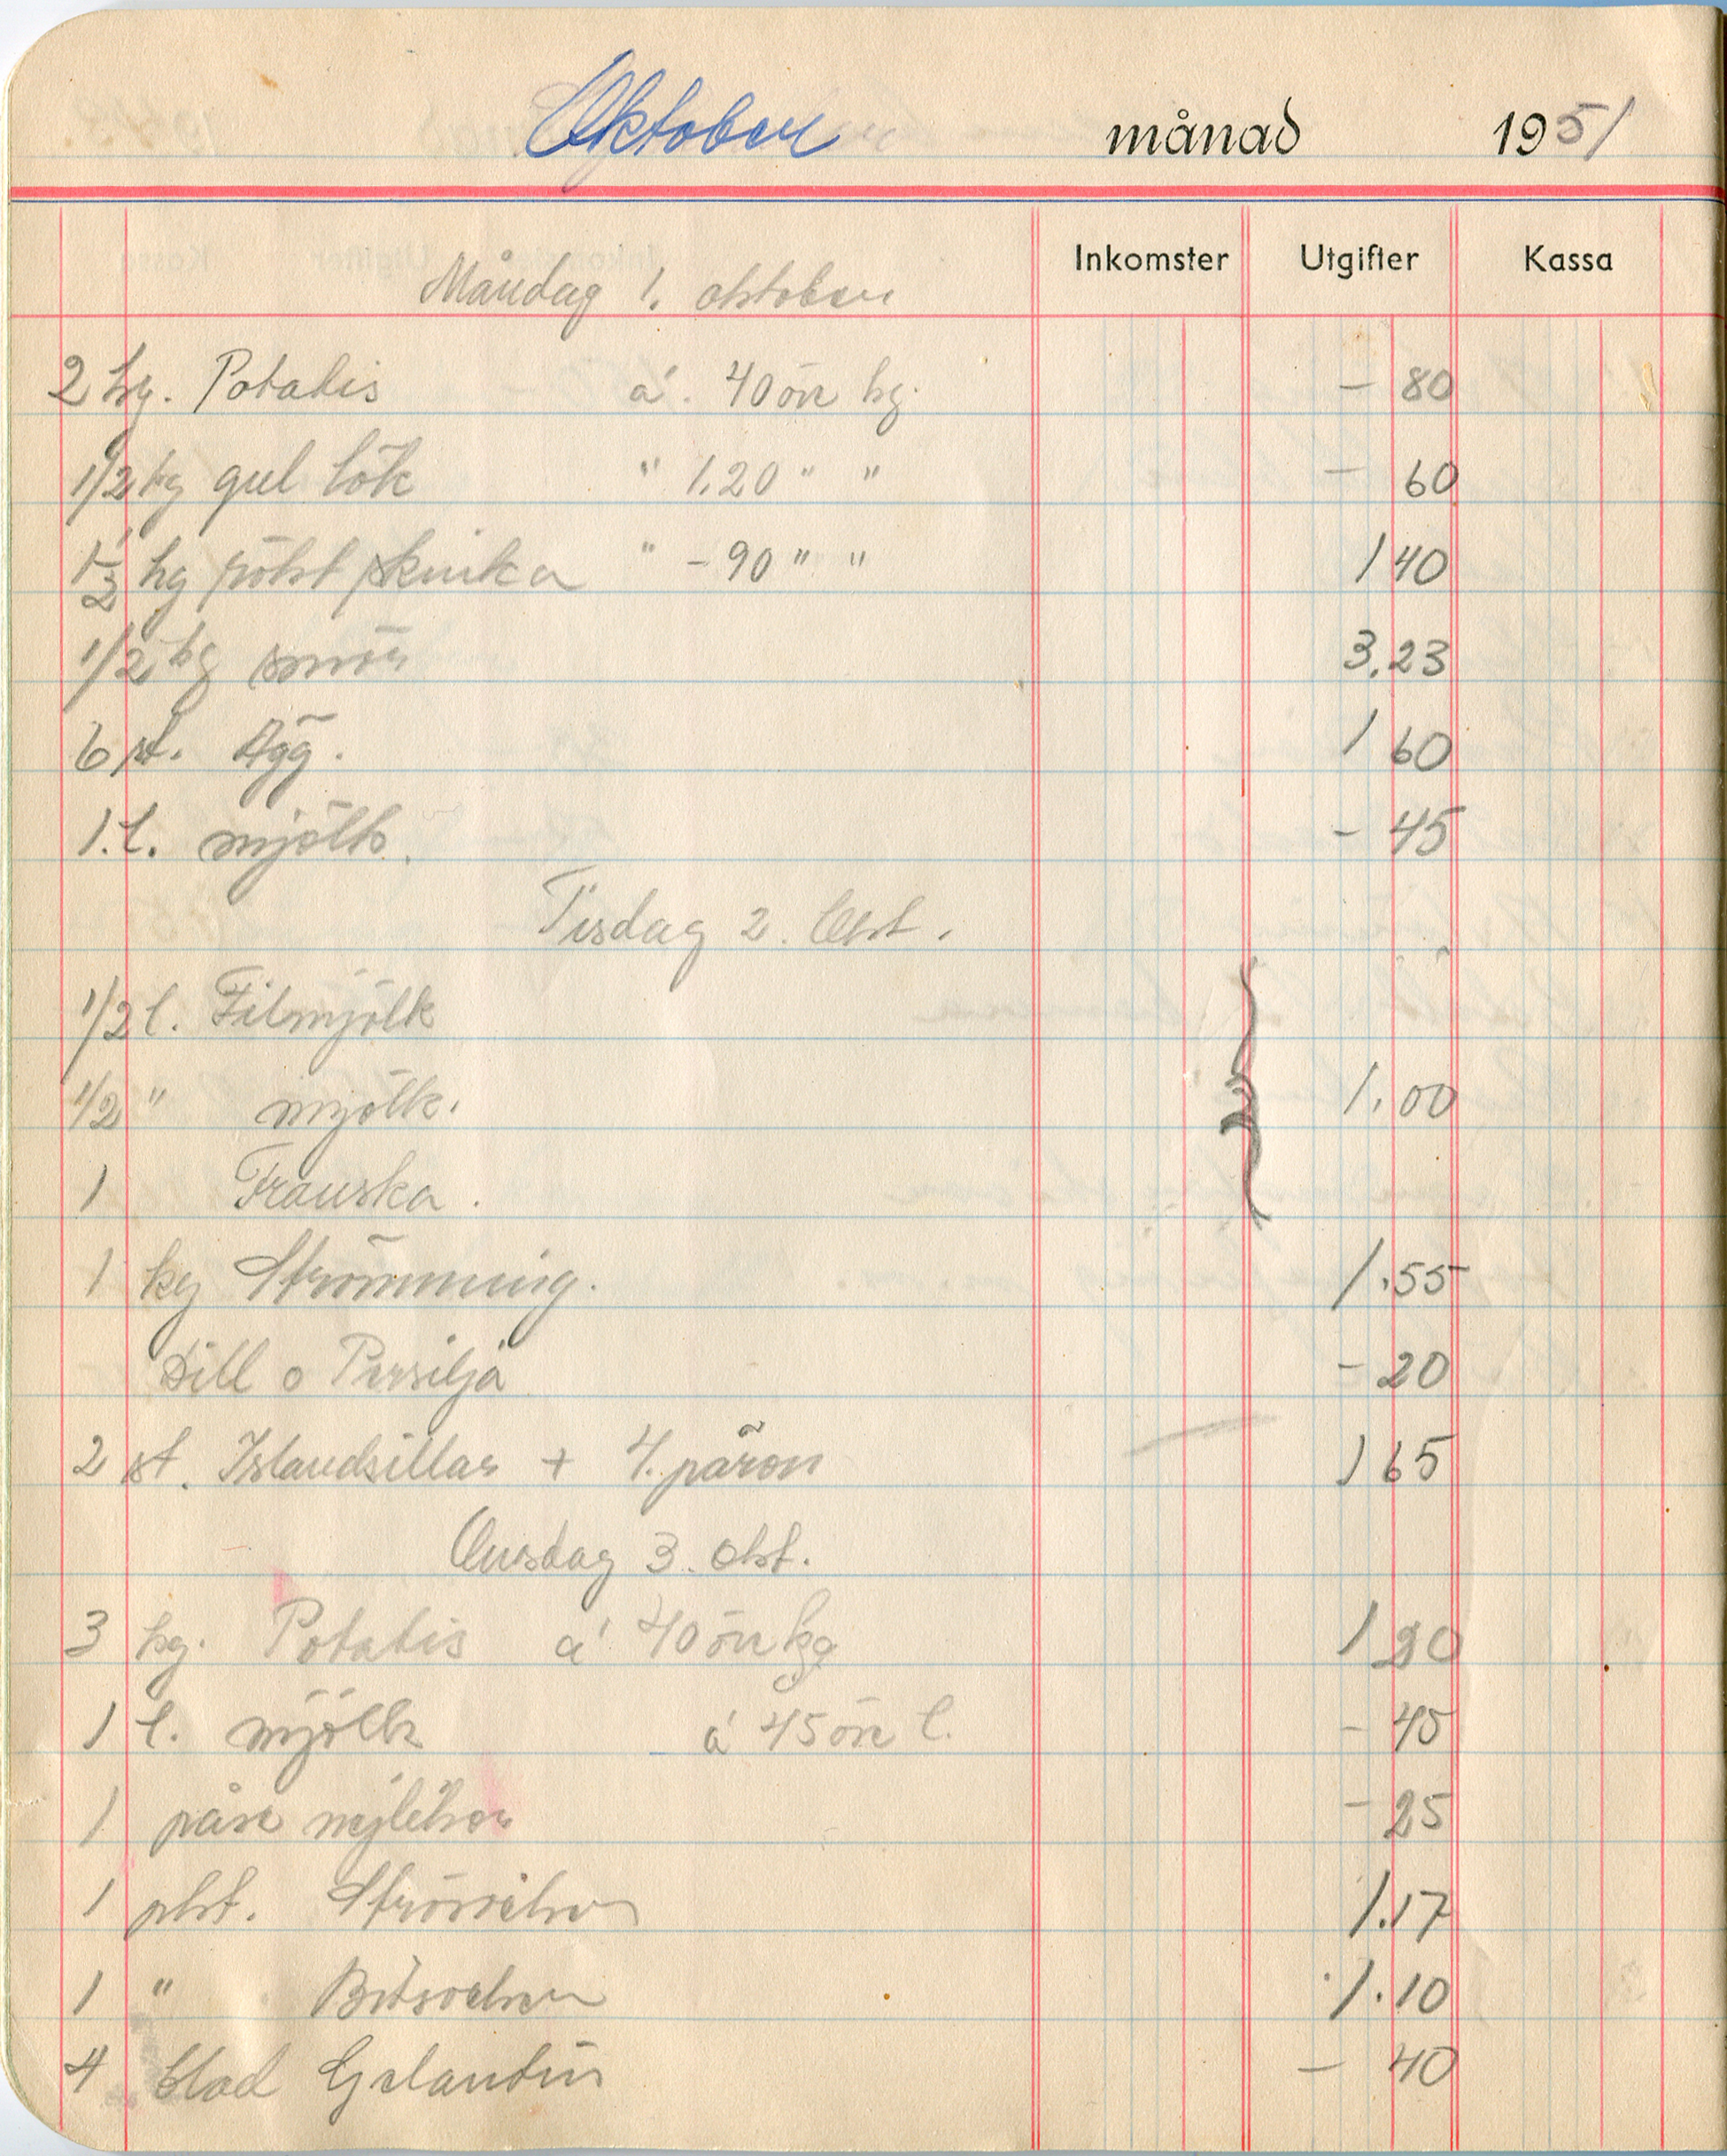 Oktober månad 1951
Inkomster Utgifter Kassa
Måndag 1. oktober
2 kg. Potatis á. 40 öre kg. - 80
1/2 kg gul lök " 1.20 " " - 60
1 1/2 hg rökt skinka " - 90 " " 1 40
1/2 kg smör 3.23
6 st. Ägg. 1 60
1. l. mjölk. - 45
Tisdag 2. Okt.
1/2 l. Filmjölk
1/2 " mjölk. 1.00
1 Franska.
1 kg Strömming. 1.55
Dill o Persilja - 20
2 st. Islandsillar + 4. päron 1 65
Onsdag 3. Okt.
3 kg. Potatis á 40 öre kg 1 20
1 l. mjölk á 45 öre l. - 45
1 påse nejlikor - 25
1 pkt. Strösocker 1.17
1 " Bitsocker 1.10
4 blad Gelantin - 40